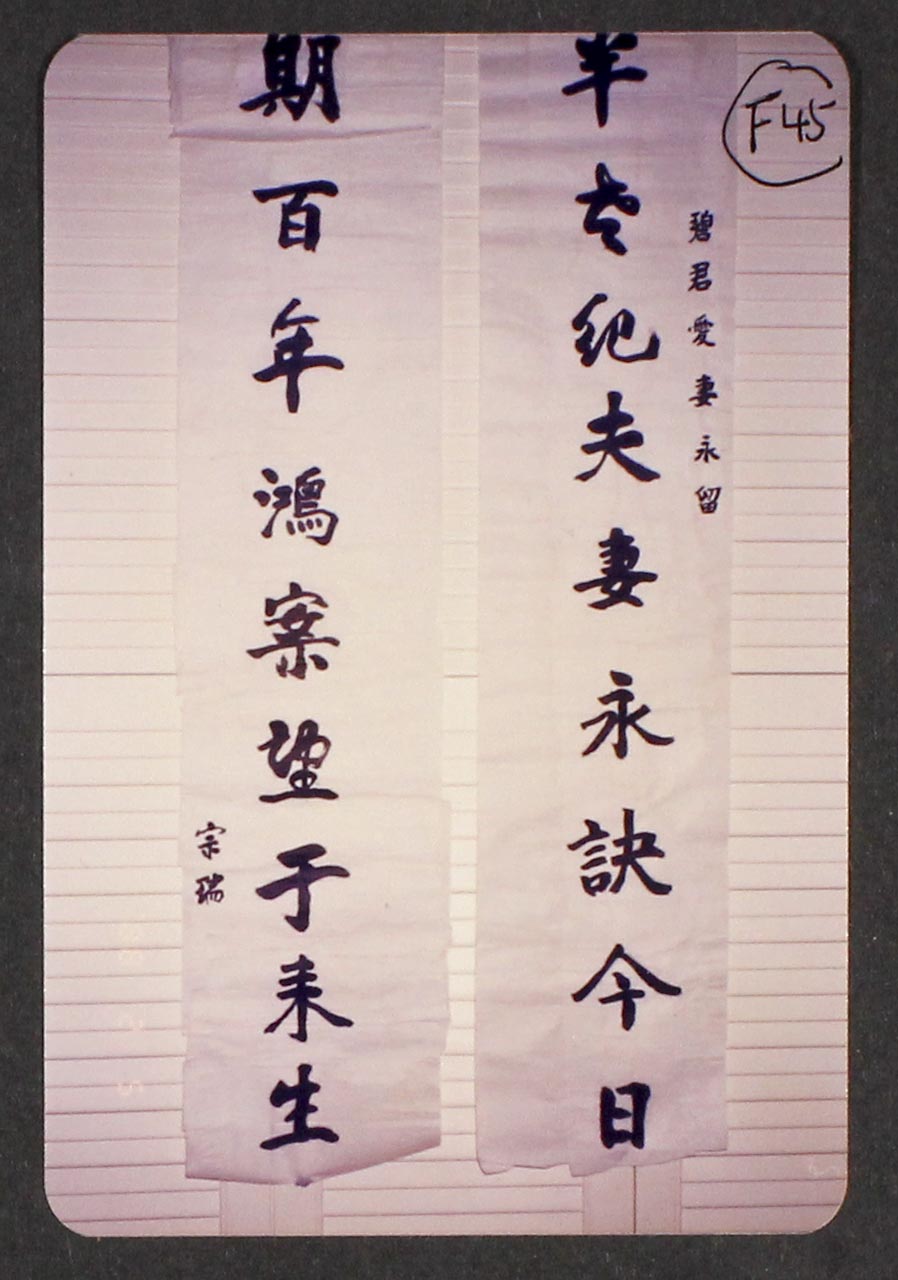 F45
碧君愛妻永留
半世纪夫妻永訣今日
期百年鴻案望于来生
宗瑞